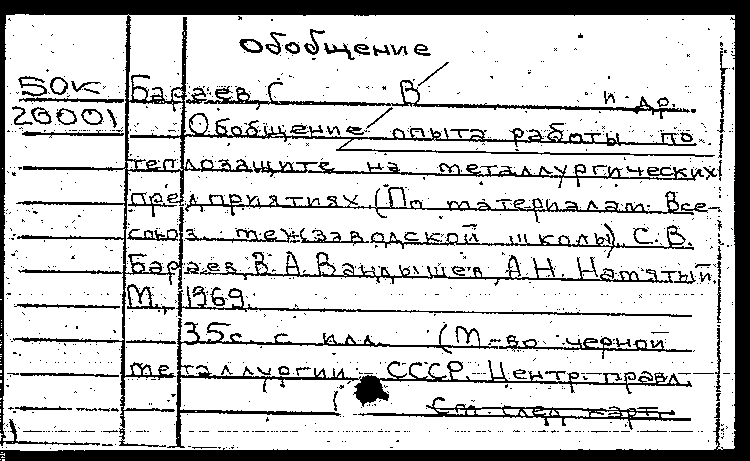 Обобщение
50К Бараев, С В и др.
26001 Обобщение опыта работы по
теплозащите на металлургических
предприятиях (По материалам Все-
союз. межзаводской школы) С. В.
Бараев, В. А. Вандышев, А. Н. Натятый
М., 1969.
35с. с илл. (М-во черной
металлургии СССР. Центр. правл.
См след карт.